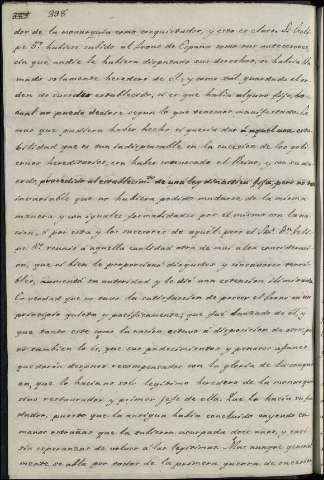 398
dor de la monarquia como conquistador, y esto es claro. Si Feli-
pe 5º hubiera subido al trono de España como sus antecesores
sin que nadie le hubiera disputado sus derechos, se habria lla-
mado solamente heredero de él, y como tal guardado el or-
den de sucesion establecido, si es que habia alguno fijo, lo
cual no puede decirse segun lo que tenemos manifestado. Lo
mas que pudiera haber hecho si queria dar á aquel una esta-
bilidad que es tan indispensable en la sucesion de los gobi-
ernos hereditarios, era haber convocado el Reino, y con su acu-
erdo, procedido al establecimto de una ley dinastica fija, pero no tan
invariable que no hubiera podido mudarse de la misma
manera y con iguales formalidades por el mismo con la na-
cion, ó por esta y los sucesores de aquel. pero el Sor. Dn. Feli-
pe 5º reunió á aquella cualidad otra de mas alta consideraci-
on, que si bien le proporcionó disgustos y sinsabores terri-
bles, aumentó su autoridad y le dió una estension ilimitada.
Es verdad que no tuvo la satisfaccion de poseer el trono en un
principio quieta y pacificamente, que fué lanzado de él, y
que tanto este como la nacion estuvo á disposicion de otro; pe-
ro tambien lo es, que sus padecimientos y penosos afanes
quedaron despues recompensados con la gloria de la conquis-
ta, que le hacia no solo legitimo heredero de la monarquia
sino restaurador y primer jefe de ella. Que le hacia su fun-
dador, puesto que la antigua habia concluido cayendo en
manos estrañas que la tubieron ocupada doce años, y casi
sin esperanzas de volver á las legitimas. Mas aunque general-
mente se habla por todos de la primera guerra de sucesion